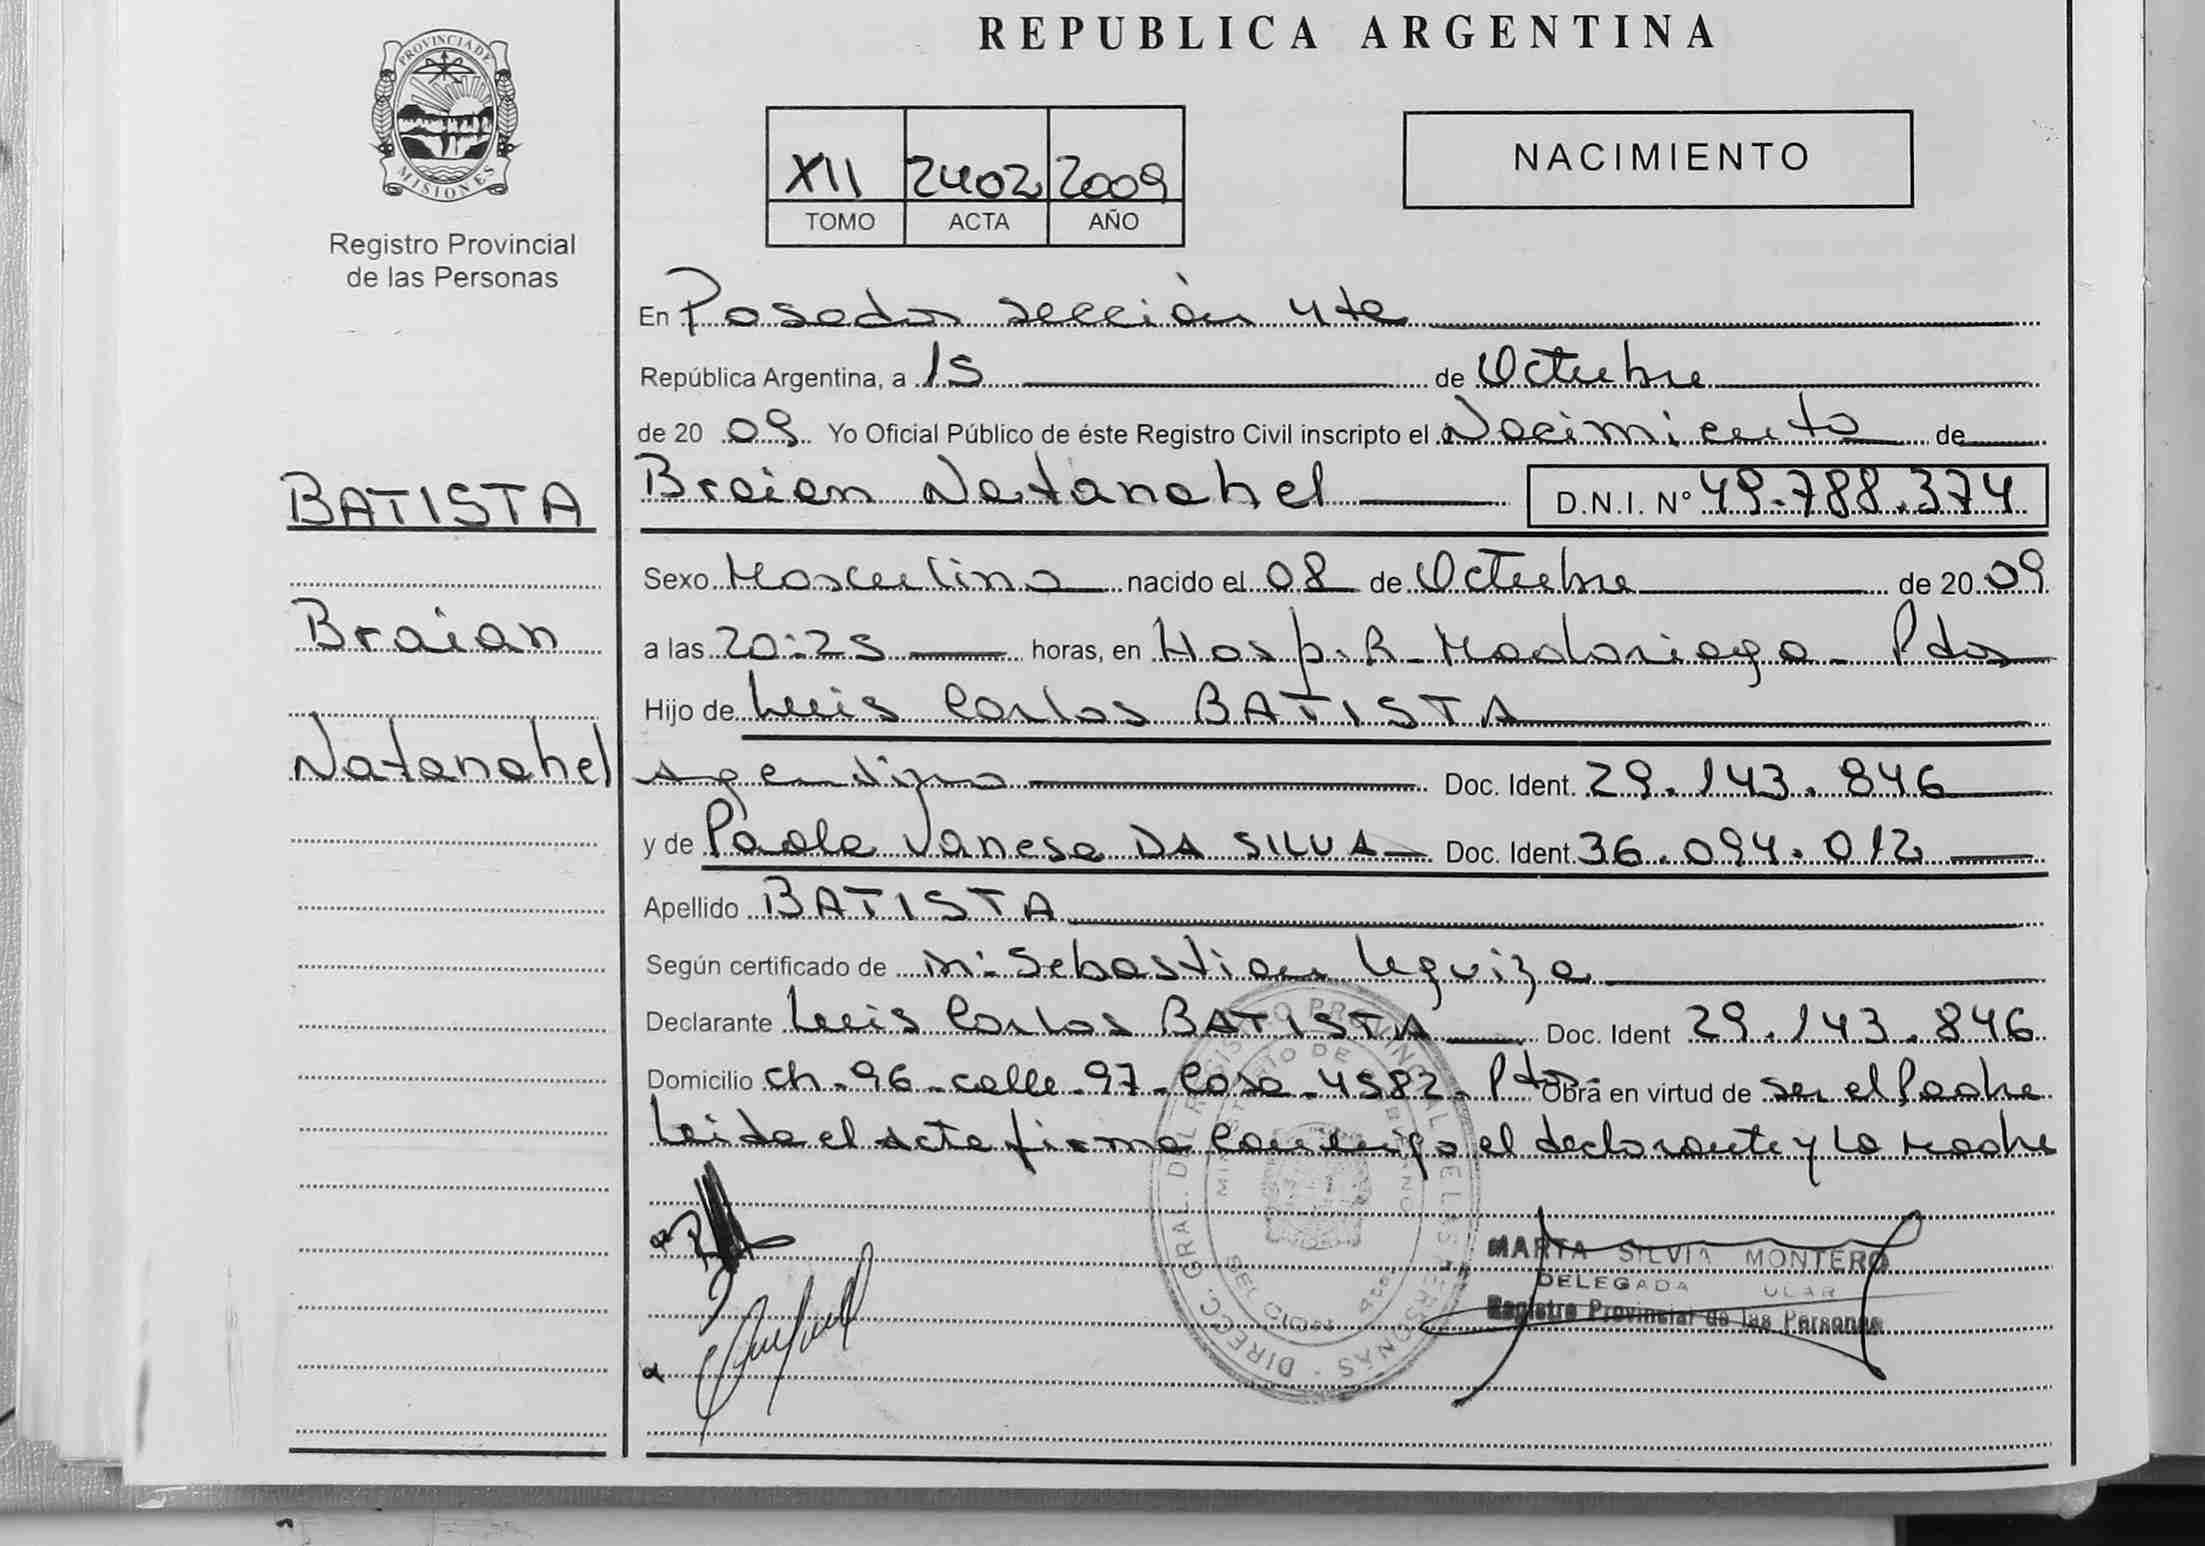 REPUBLICA ARGENTINA
PROVINCIA DE
MISIONES
Registro Provincial
de las Personas
XII 2402 2009
TOMO ACTA AÑO
NACIMIENTO
En Posadas sección 4ta
República Argentina, a 15 de Octubre
de 20 09 Yo Oficial Público de éste Registro Civil inscripto el Nacimiento de
BATISTA
Braian
Natanahel
Braian Natanahel D.N.I. Nº 49.788.374
Sexo Masculino nacido el 08 de Octubre de 20 09
a las 20:25 horas, en Hosp. R. Madariaga - Pdas
Hijo de Luis Carlos BATISTA
Argentino Doc. Ident. 29.143.846
y de Paola Vanesa DA SILVA Doc. Ident 36.094.012
Apellido BATISTA
Según certificado de Sebastian
Declarante Luis Carlos BATISTA Doc. Ident 29.143.846
Domicilio ch-96-calle-97-Casa-4582-Pdas- Obra en virtud de ser el Padre
Leida el acta firma conmigo el declarante y la Madre
DIRECC. GRAL. DEL REGISTRO PROVINCIAL DE LAS PERSONAS
MINISTERIO DE
MARTA SILVIA MONTERO
DELEGADA
Registro Provincial de las Personas